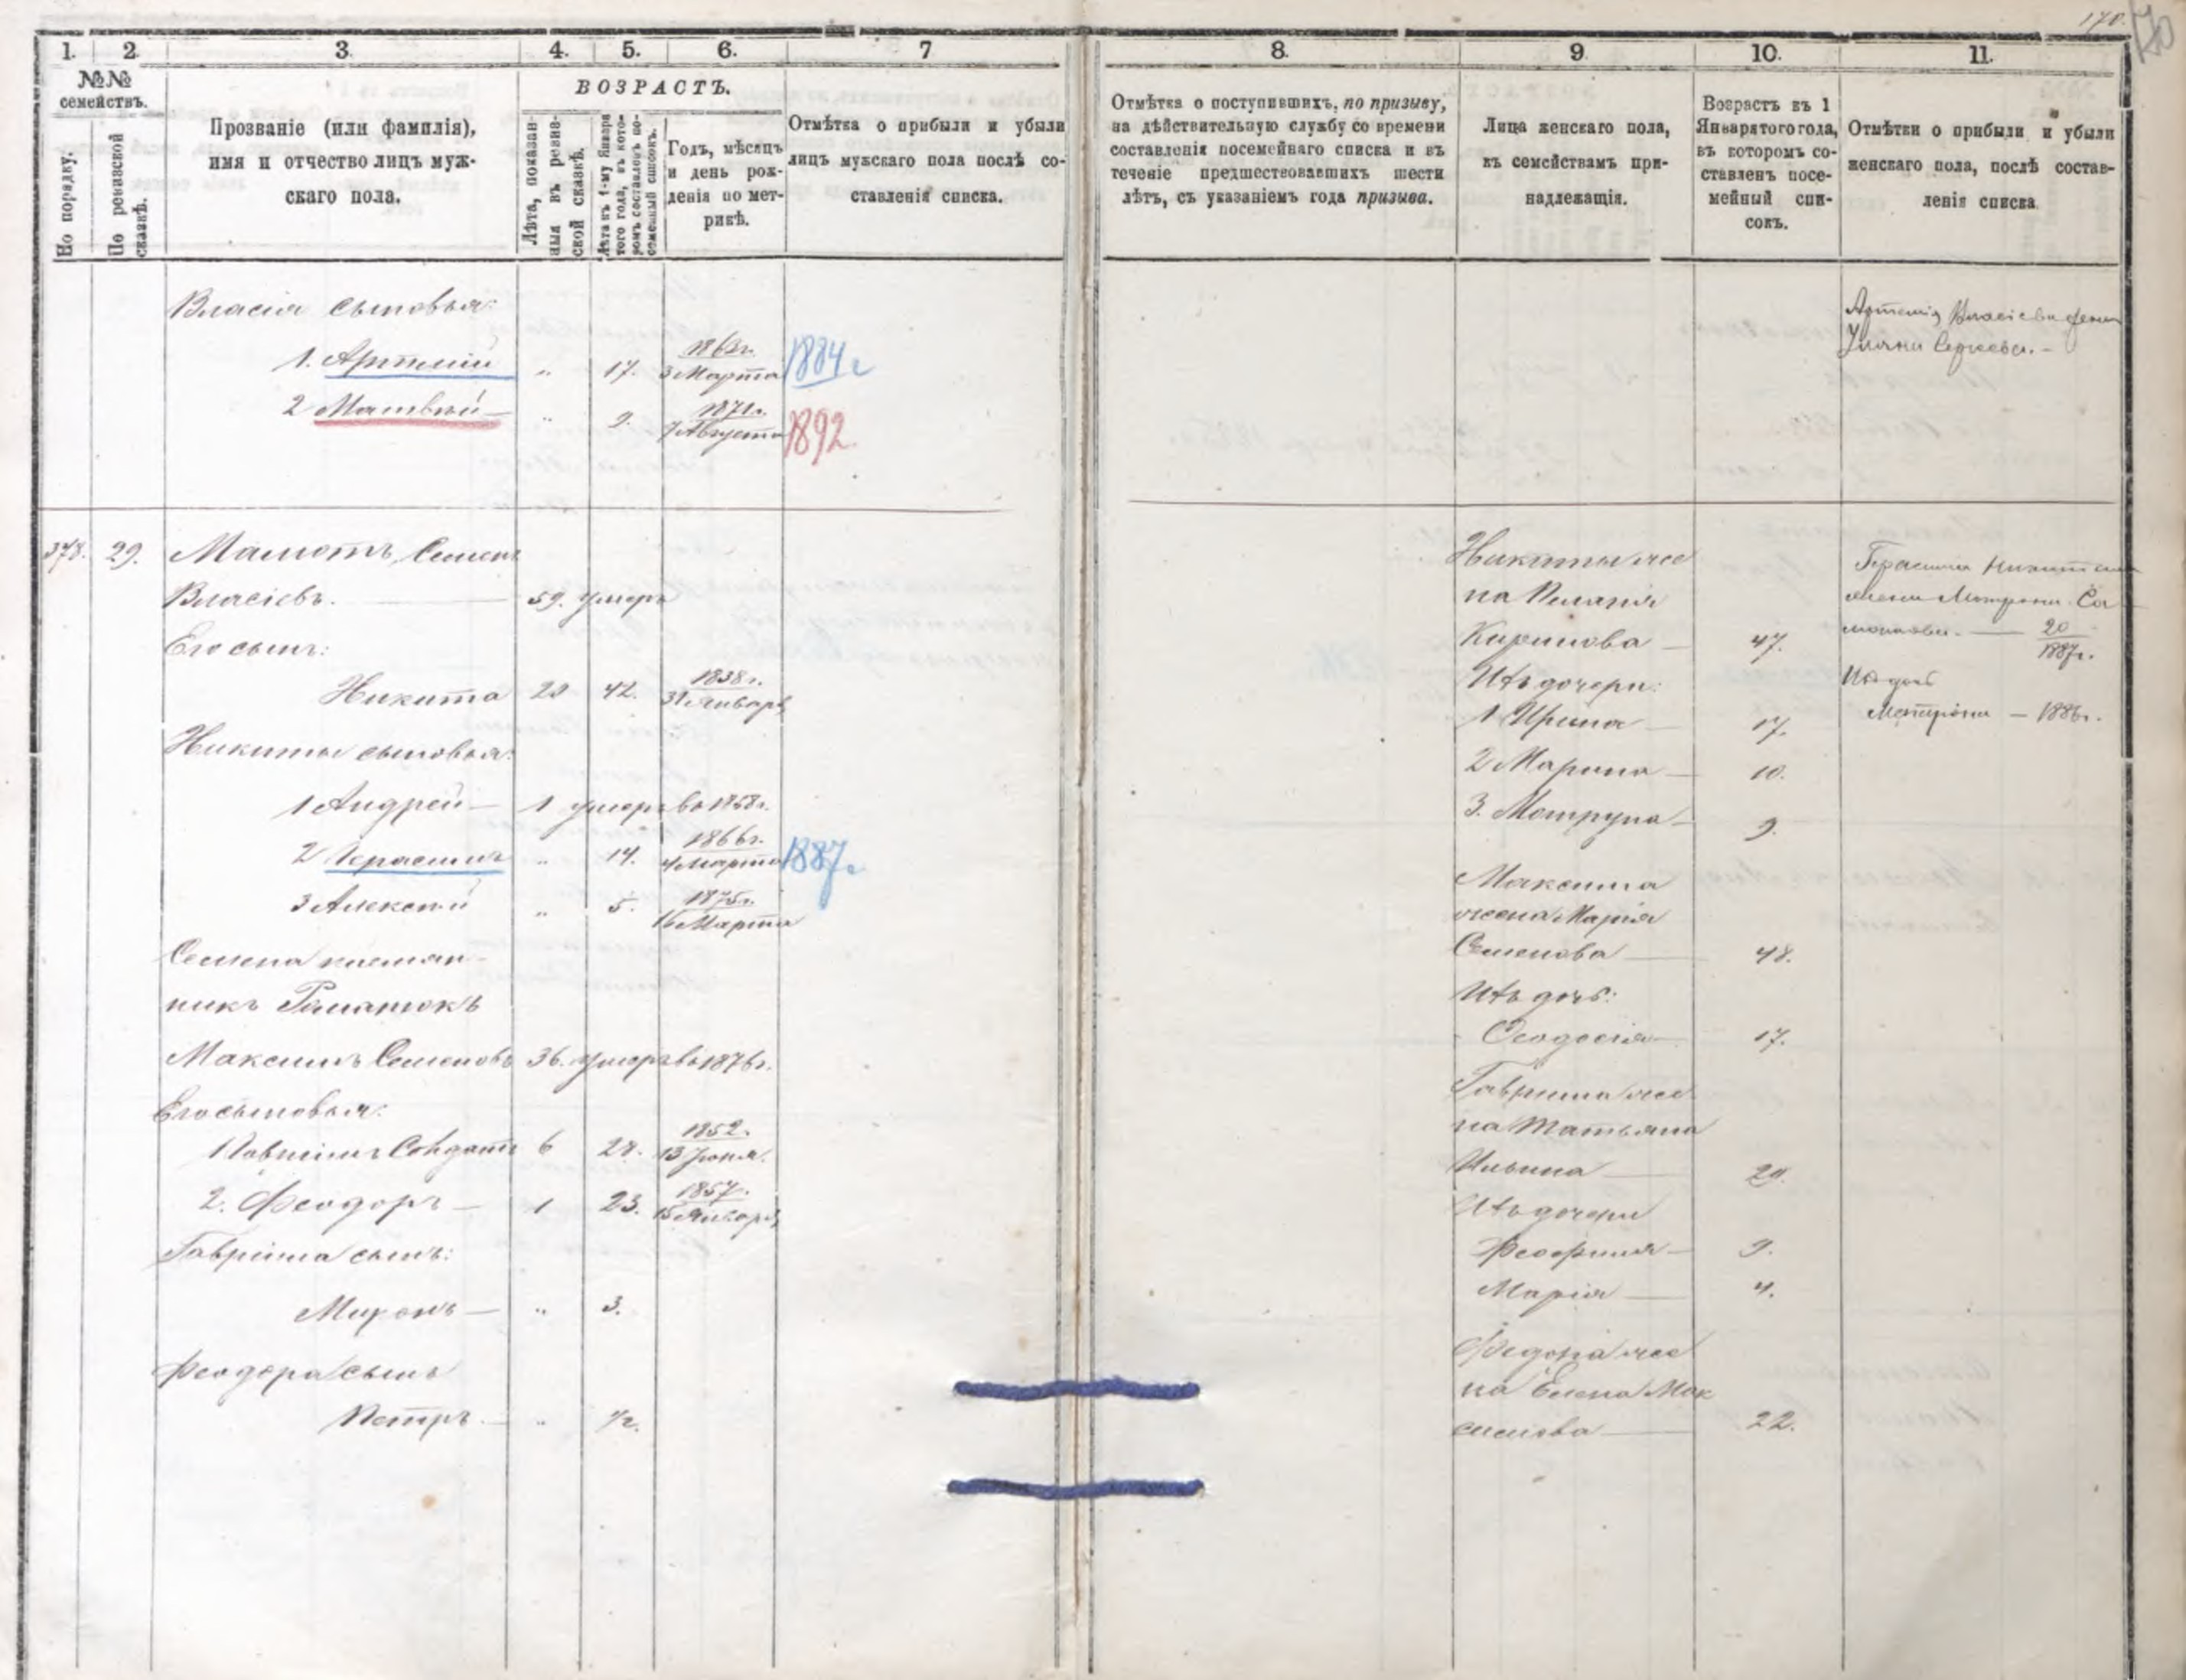 170.
70
1. 2. 3. 4. 5. 6. 7
№№ семействъ.
По порядку.
По ревизской сказкѣ.
Прозваніе (или фамилія),
имя и отчество лицъ муж-
скаго пола.
ВОЗРАСТЪ.
Лѣта, показан-
ныя въ ревиз-
ской сказкѣ.
Лѣта къ 1-му Января
того года, въ кото-
ромъ составленъ по-
семейный списокъ.
Годъ, мѣсяцъ
и день рож-
денія по мет-
рикѣ.
Отмѣтка о прибыли и убыли
лицъ мужскаго пола послѣ со-
ставленія списка.
Власія сыновья:
1. Артемій " 17. 3 Марта 1884 г
2 Матвѣй — " 9. 1871г. 7 Августа 1892
378. 29. Мамотъ Семенъ
Власіевъ. — 59. умеръ
Его сынъ:
Никита 20 42. 1838г. 31 Январь
Никиты сыновья:
1 Андрей — 1 умеръ въ 1868г.
2 Герасимъ " 14. 1866г. 4 Марта 1887г
3 Алексѣй " 5. 1875г. 16 Марта
Семена племян-
никъ
Максимъ Семеновъ 36. умеръ въ 1876г.
Его сыновья:
1 Гавріилъ Солдатъ 6 28. 1852. 13 Іюля.
2. Феодоръ — 1 23. 1857. 15 Январь
Гавріила сынъ:
Миронъ — " 3.
Феодора сынъ
Петръ — " 1/2.
8. 9. 10. 11.
Отмѣтка о поступившихъ, по призыву,
на дѣйствительную службу со времени
составленія посемейнаго списка и въ
теченіе предшествовавшихъ шести
лѣтъ, съ указаніемъ года призыва.
Лица женскаго пола,
къ семействамъ при-
надлежащія.
Возрастъ въ 1
Января того года,
въ которомъ со-
ставленъ посе-
мейный спи-
сокъ.
Отмѣтки о прибыли и убыли
женскаго пола, послѣ состав-
ленія списка
Артемія Власіева жена
Сергеева. —
Никиты же
на Пелагія
Кирилова — 47.
Ихъ дочери:
1 Ирина — 17.
2 Марина — 10.
3. Мотруна — 9.
Максима
жена Марія
Семенова — 48.
Ихъ дочь:
Ѳеодосія — 17.
Гавриила же
на Татьяна
Ильина — 29.
Ихъ дочери
Феофилія — 9.
Марія — 4.
Федора же
на Елена Мак
симова — 22.
Герасима Никитина
жена Мотрона
— 20
1887г.
Ихъ дочь
Мотрона — 1886г.